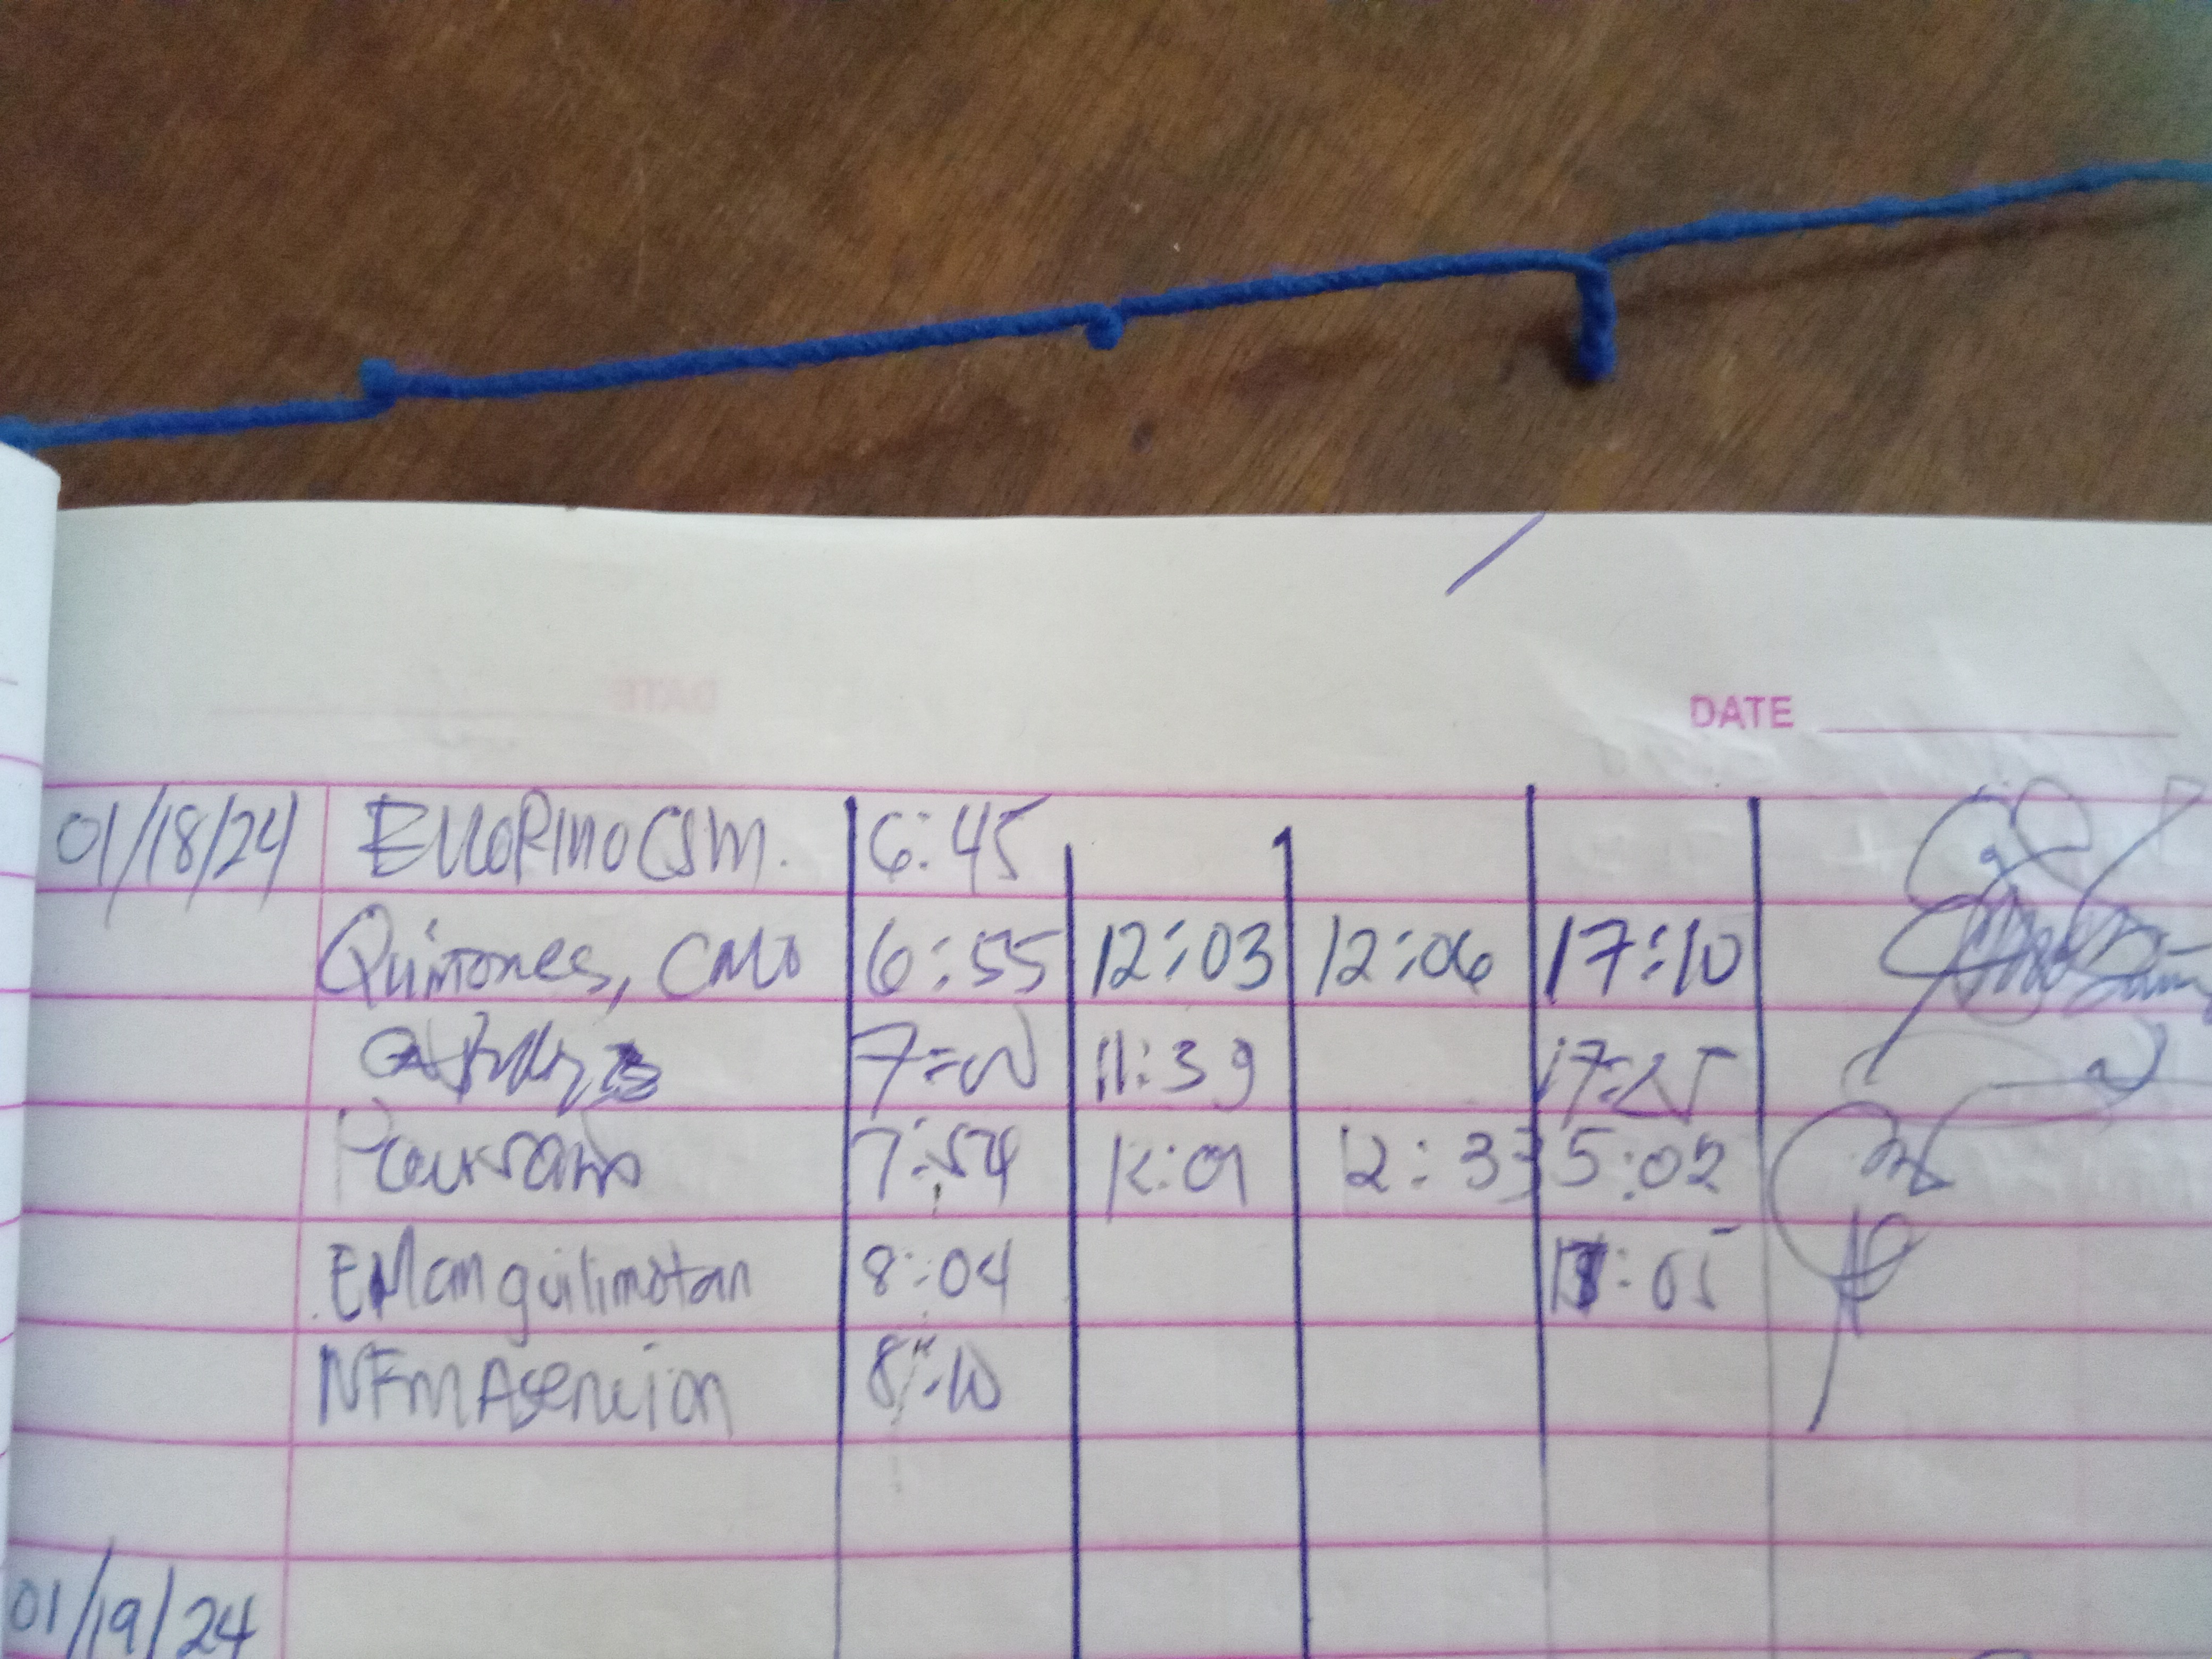 DATE
01/18/24 6:45
Quiñones, CMO 6:55 12:03 12:06 17:10
7:00 11:39 17:25
7:54 12:01 12:33 5:02
EManguilimotan 8:04 17:05
NFMAsencion 8:10
01/19/24